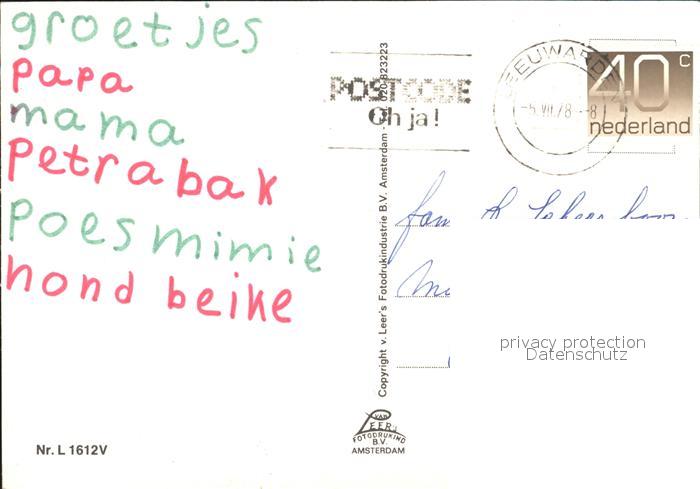 groetjes
papa
mama
petra bak
poes mimie
hond beike
Nr. L 1612V
POSTCODE
Oh ja!
Copyright v. Leer's Fotodrukindustrie B.V. Amsterdam - Tel. 020-823223
VAN
LEER's
FOTODRUKIND
B.V.
AMSTERDAM
LEEUWARDEN
-5.VII.78-
8
40 c
nederland
fam
privacy protection
Datenschutz